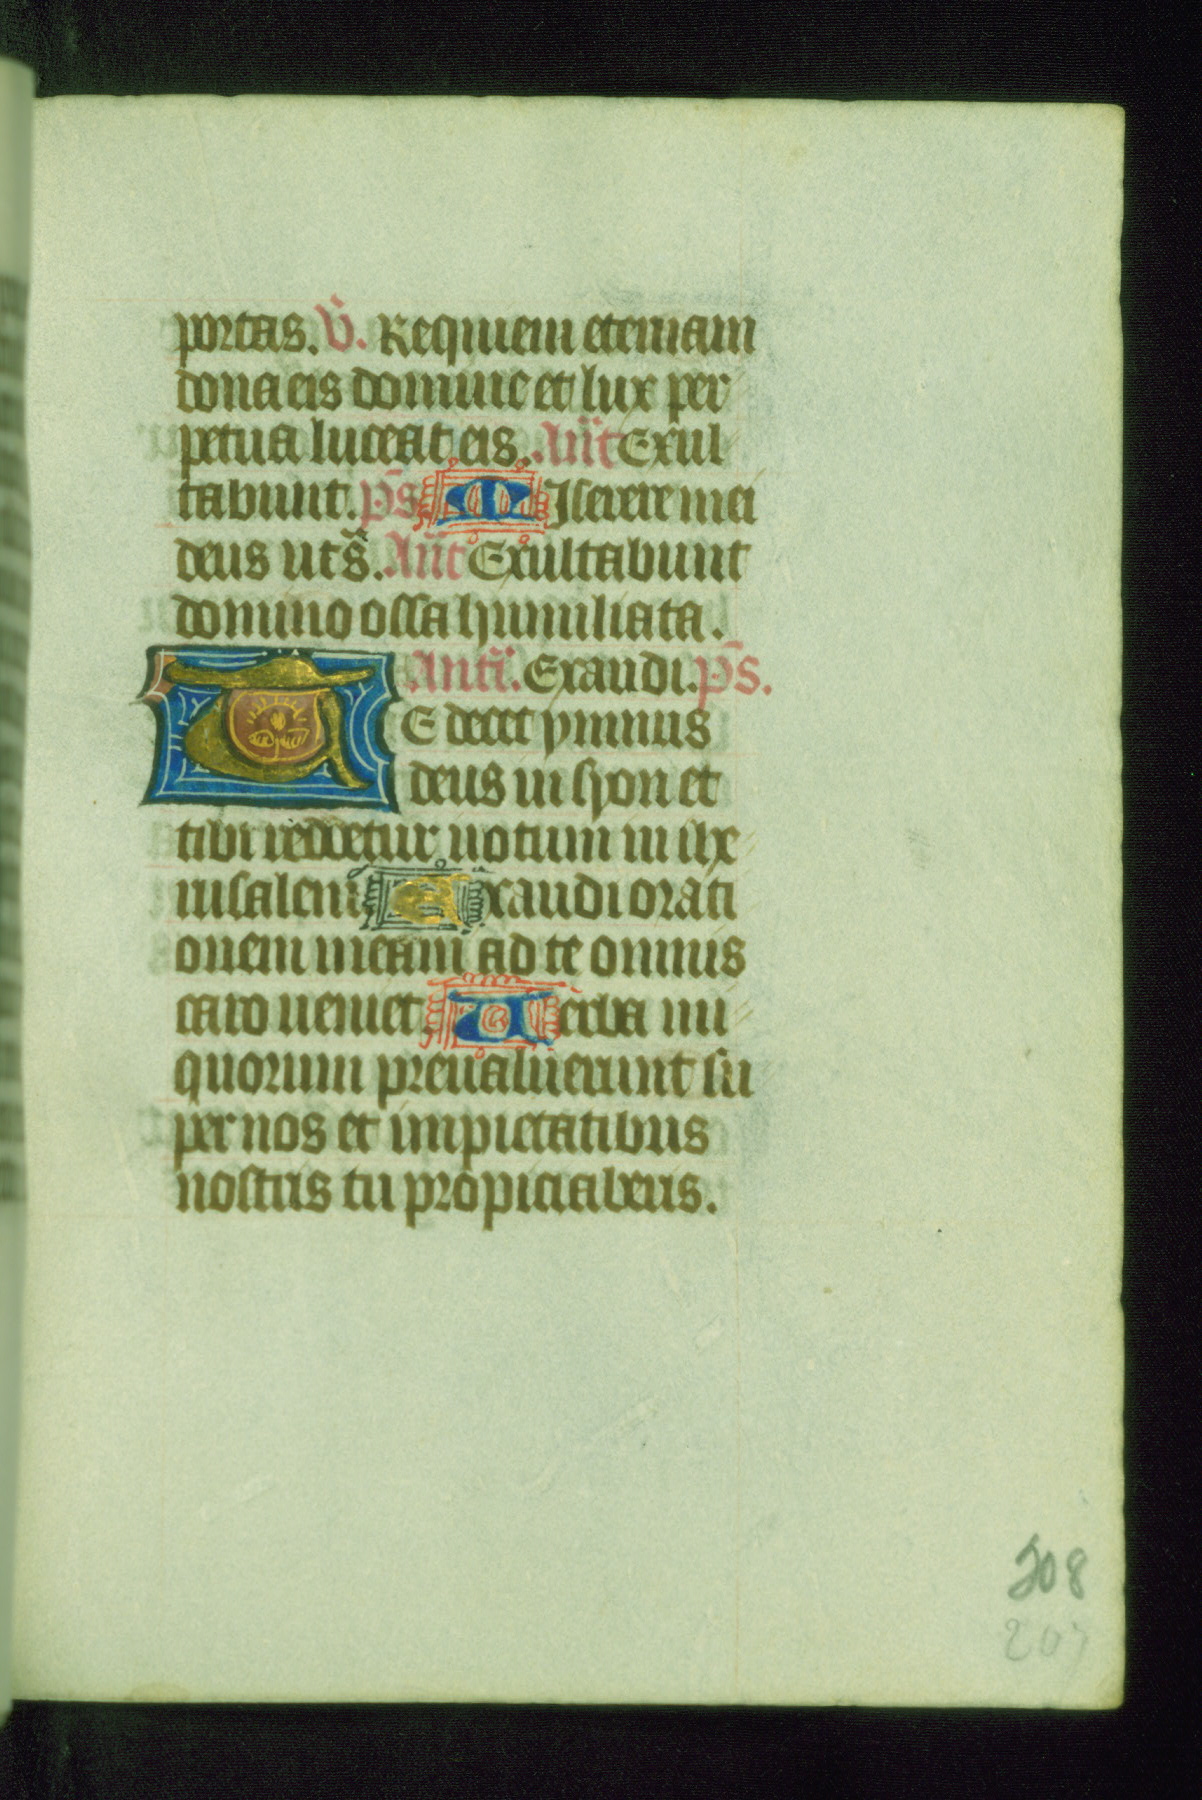 portas. V̄. Requiem eternam
dona eis domine et lux per
petua luceat eis. Añt Exul
tabunt. p̄s Miserere mei
deus ut sͣ. Añt Exultabunt
domino ossa humiliata.
Antᷓ. Exaudi. p̄s.
TE decet ymnus
deus in syon et
tibi reddetur uotum in ihe
rusalem Exaudi orati
onem meam ad te omnis
caro ueniet. Uerba ini
quorum preualuerunt su
per nos et impietatibus
nostris tu propiciaberis.
208
207